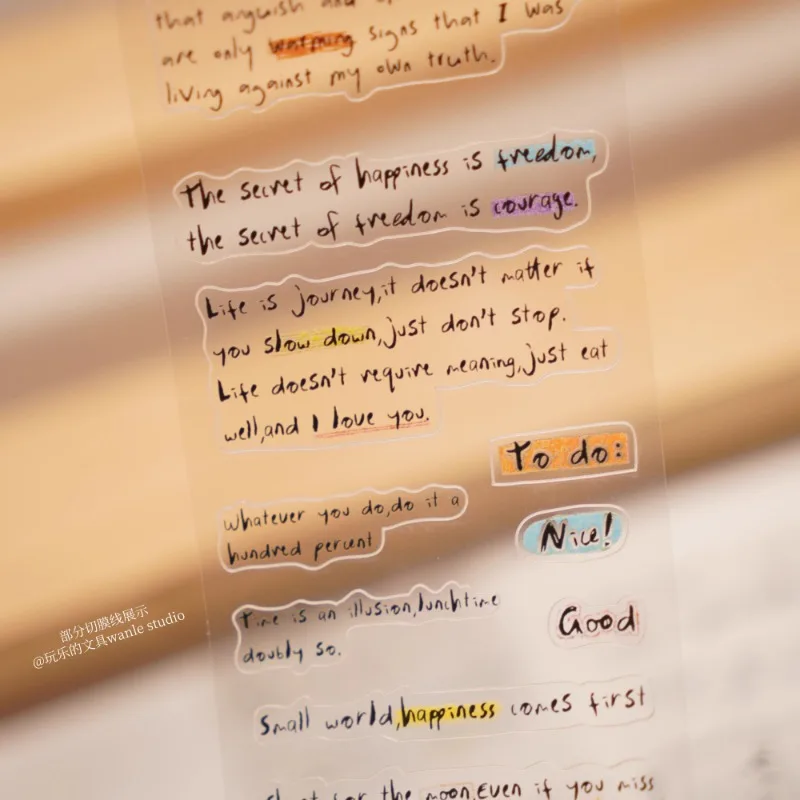 that anguish and
are only warning signs that I was
living against my own truth.
The secret of happiness is freedom,
the secret of freedom is courage.
Life is journey,it doesn't matter if
you slow down,just don't stop.
Life doesn't require meaning,just eat
well,and I love you.
To do:
Whatever you do,do it a
hundred percent
Nice!
Time is an illusion,lunchtime
doubly so.
Good
Small world,happiness comes first
for the moon.Even if you miss
部分切膜线展示
@玩乐的文具wanle studio